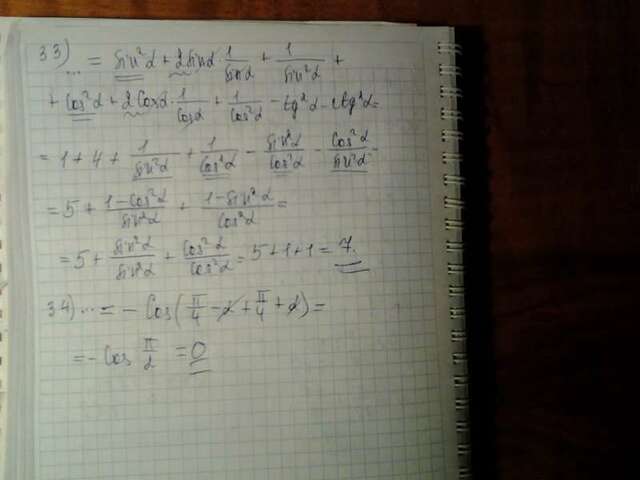 33) ... = sin²α + 2sinα · 1/sinα + 1/sin²α +
+ cos²α + 2cosα · 1/cosα + 1/cos²α - tg²α - ctg²α =
= 1 + 4 + 1/sin²α + 1/cos²α - sin²α/cos²α - cos²α/sin²α =
= 5 + 1-cos²α/sin²α + 1-sin²α/cos²α =
= 5 + sin²α/sin²α + cos²α/cos²α = 5 + 1 + 1 = 7.
34) ... = - cos(π/4 - α + π/4 + α) =
= - cos π/2 = 0